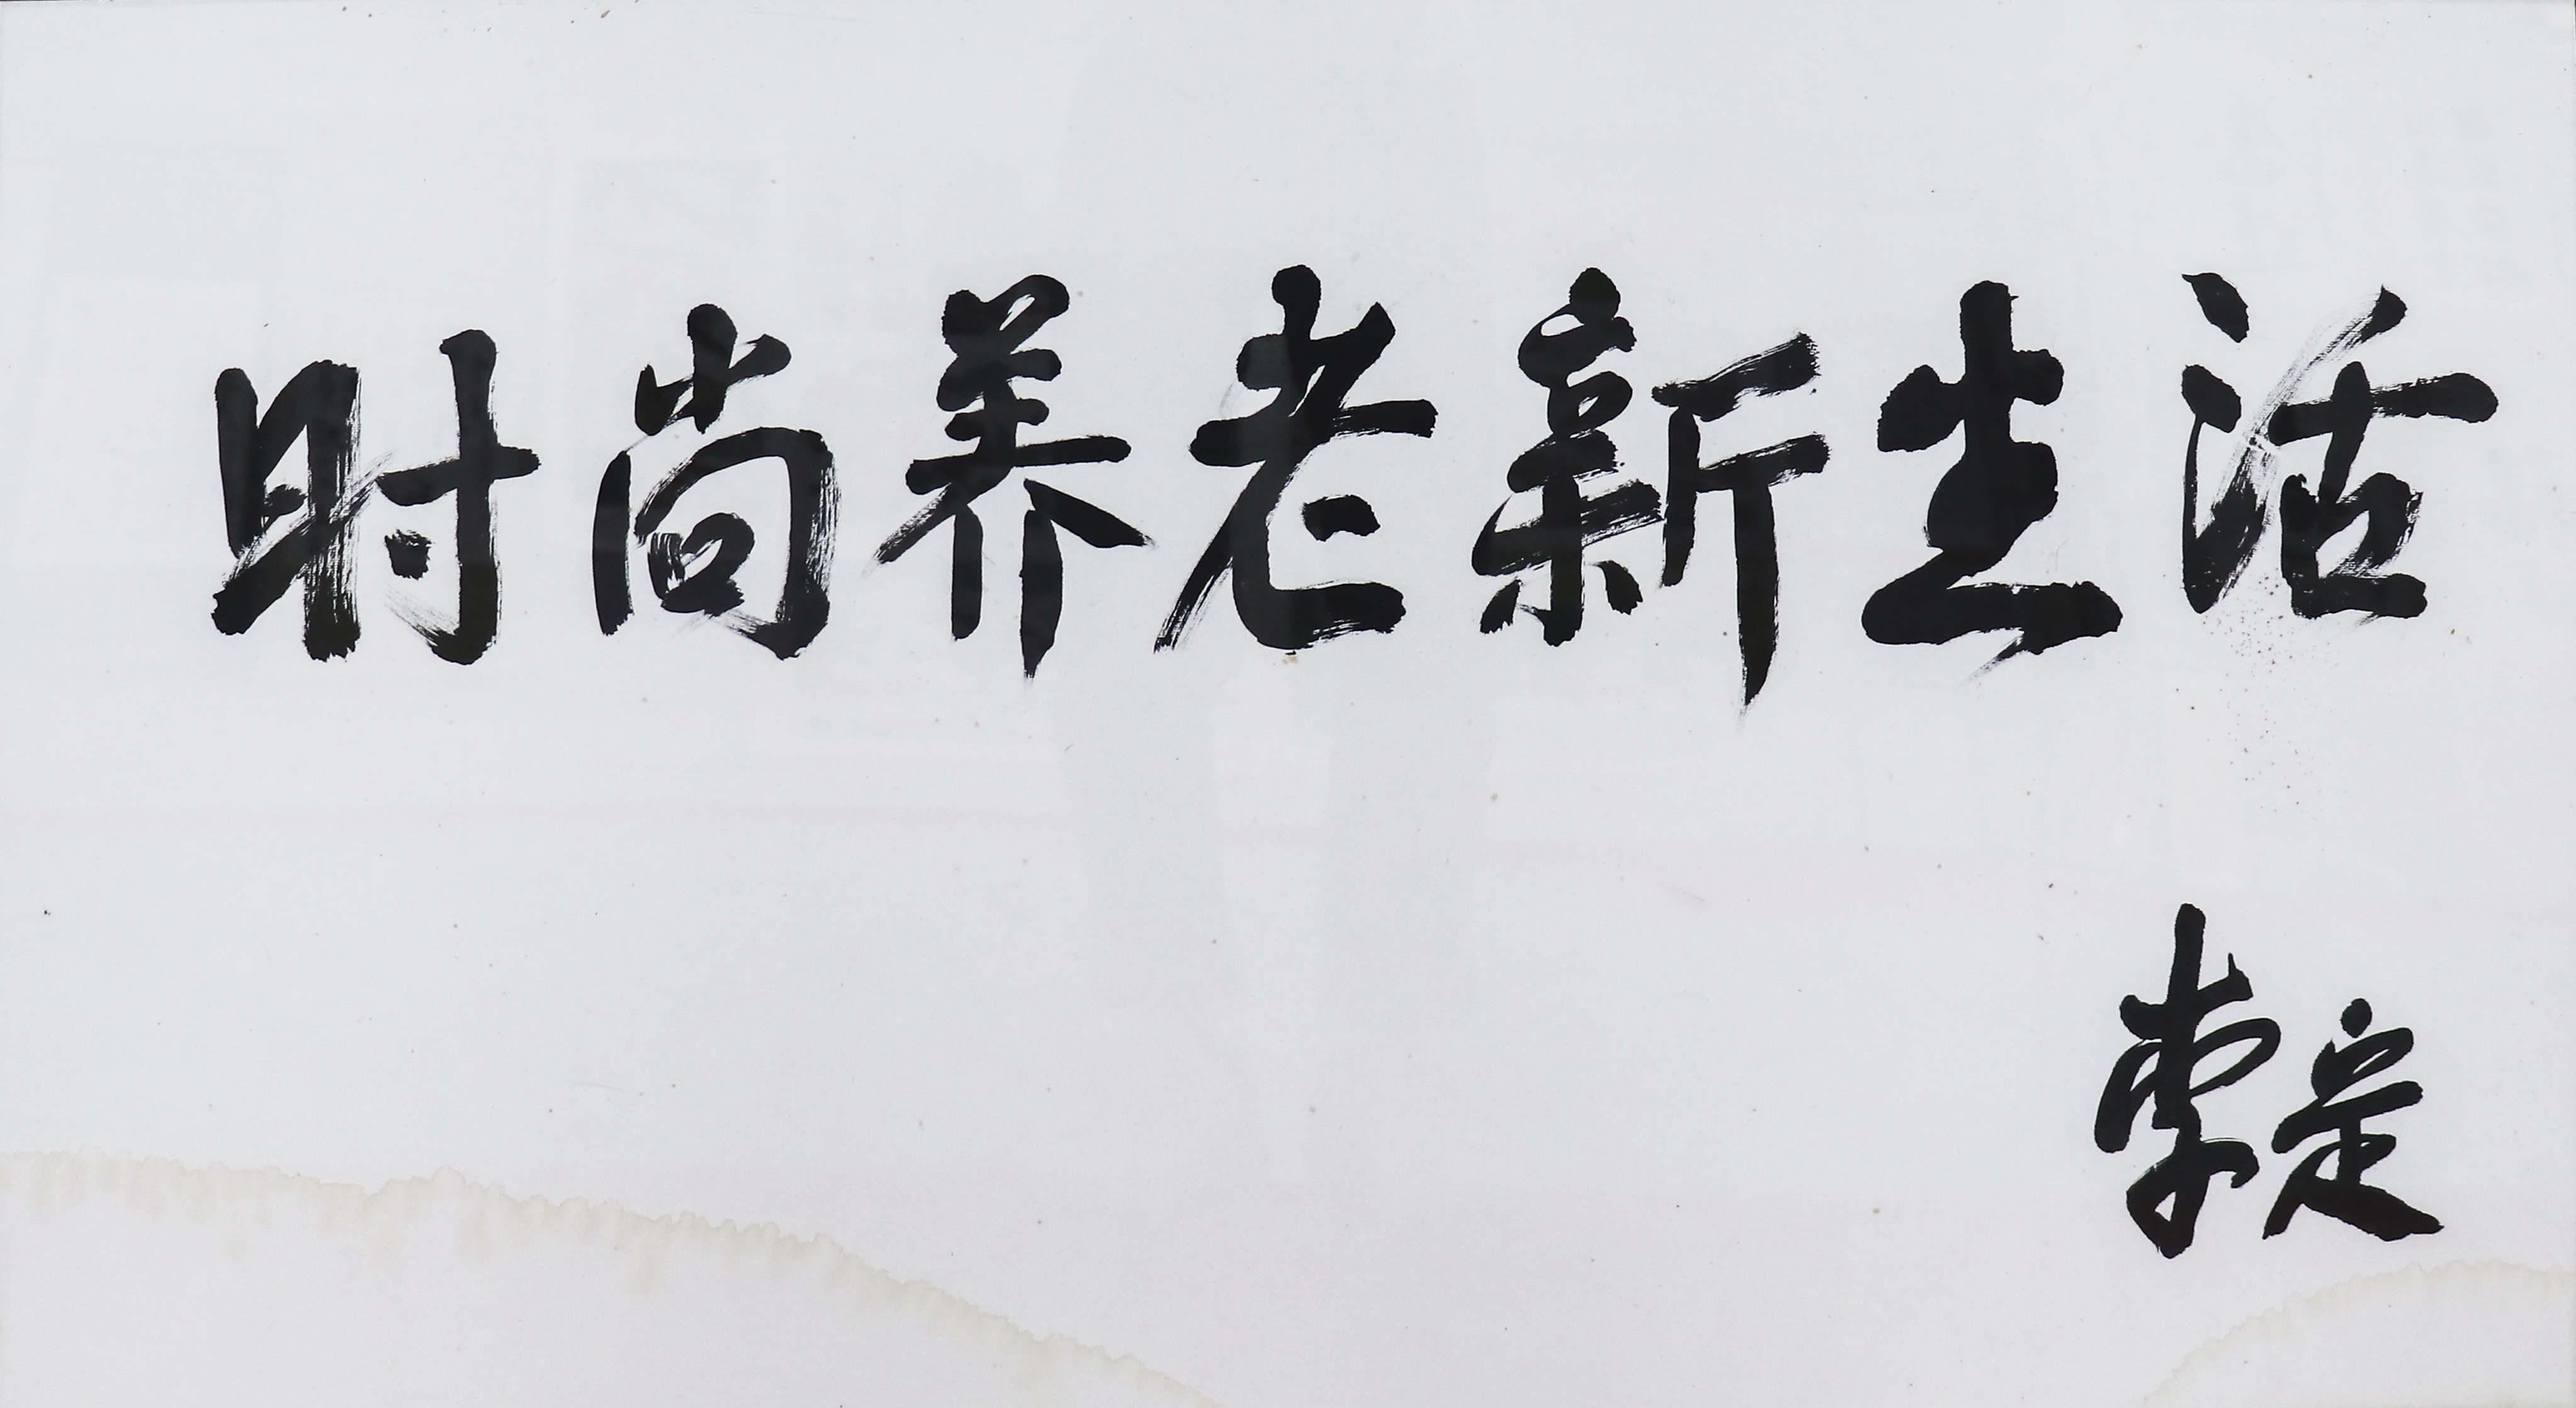 时尚养老新生活
李定